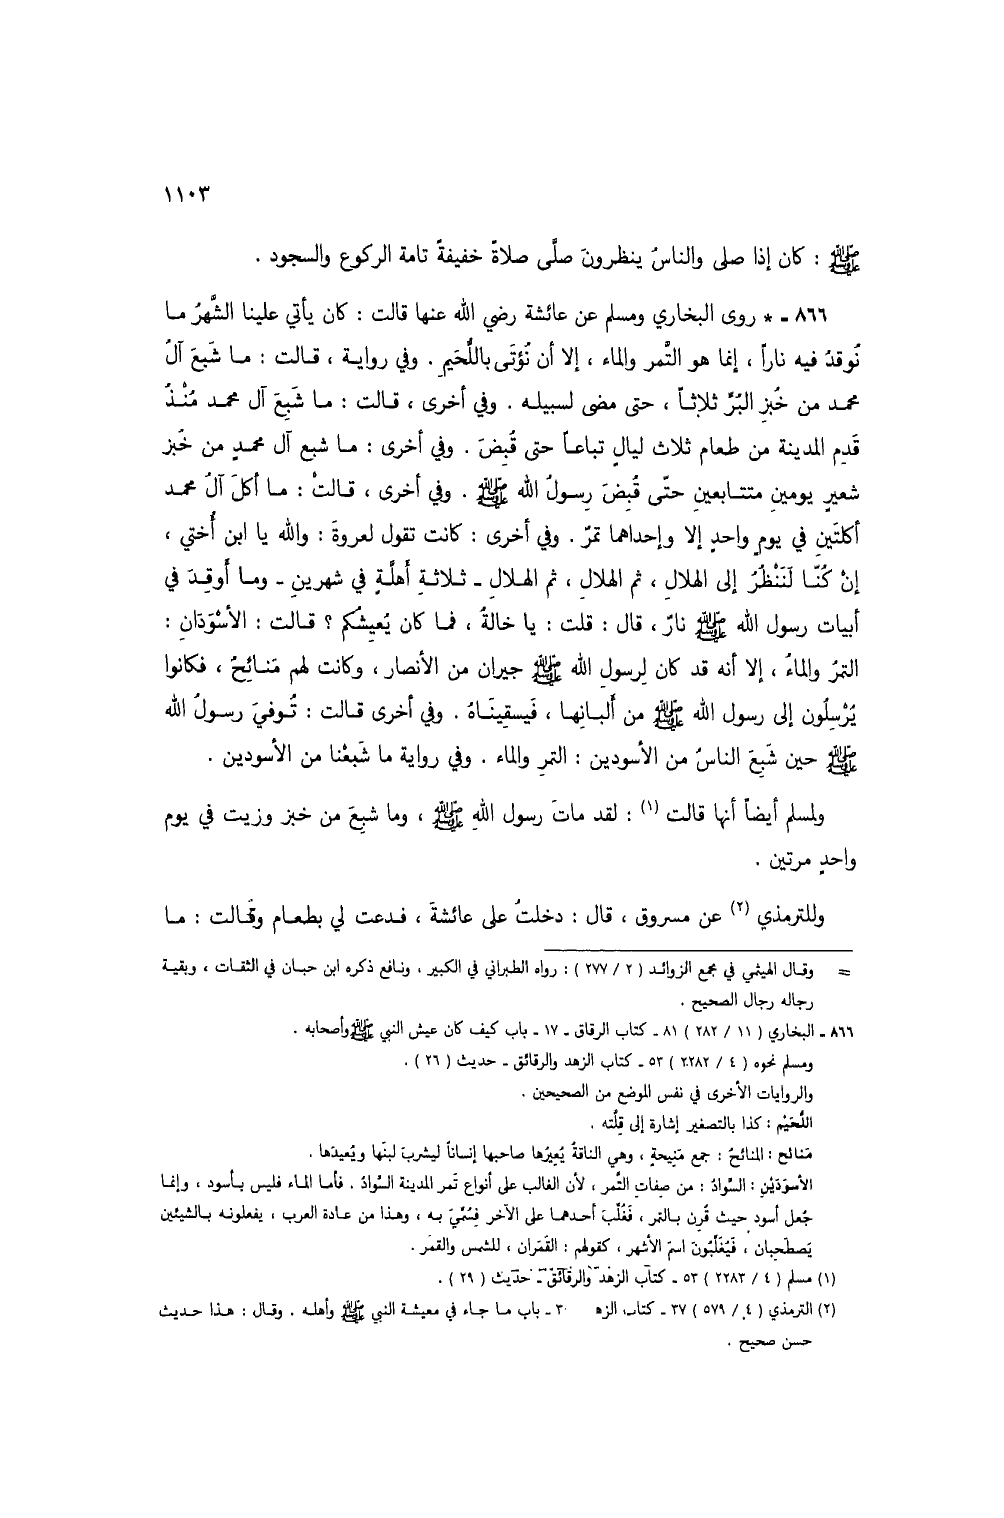 ١١٠٣
ﷺ : كان إذا صلى والناسُ ينظرونَ صلَّى صلاةً خفيفةً تامة الركوع والسجود .
٨٦٦ ـ * روى البخاري ومسلم عن عائشة رضي الله عنها قالت : كان يأتي علينا الشَّهرُ ما
نُوقدُ فيه ناراً ، إنما هو التَّمر والماء ، إلا أن نُؤتَى باللُّحَيم . وفي رواية ، قالت : ما شَبعَ آلُ
محمد من خُبز البُرِّ ثلاثاً ، حتى مضى لسبيله . وفي أخرى ، قالت : ما شَبِعَ آل محمد مُنْذُ
قَدِم المدينة من طعام ثلاث ليالٍ تباعاً حتى قُبِضَ . وفي أخرى : ما شبع آل محمدٍ من خُبز
شعيرٍ يومينِ متتابعينِ حتَّى قُبِضَ رسولُ الله ﷺ . وفي أخرى ، قالتْ : ما أكلَ آلُ محمد
أكلتَينِ في يومٍ واحدٍ إلا وإحداهما تمرٌ . وفي أخرى : كانت تقول لعروةَ : والله يا ابن أُختي ،
إنْ كُنَّا لَنَنْظُرُ إلى الهلال ، ثم الهلالِ ، ثم الهلالِ ـ ثلاثةِ أهلَّةٍ في شهرينِ ـ وما أُوقِدَ في
أبيات رسول الله ﷺ نارٌ ، قال : قلت : يا خالةُ ، فما كان يُعيشُكم ؟ قالت : الأسْوَدَانِ :
التمرُ والماءُ ، إلا أنه قد كان لِرسولِ الله ﷺ جيران من الأنصار ، وكانت لهم مَنائِحُ ، فكانوا
يُرْسِلُون إلى رسول الله ﷺ من ألبانِها ، فَيسقِينَاهُ . وفي أخرى قالت : تُوفيَ رسولُ الله
ﷺ حين شَبِعَ الناسُ من الأسودين : التمرِ والماء . وفي رواية ما شَبعْنا من الأسودين .
ولمسلم أيضاً أنها قالت (١) : لقد ماتَ رسول اللهِ ﷺ ، وما شبعَ من خبز وزيت في يوم
واحدٍ مرتين .
وللترمذي (٢) عن مسروق ، قال : دخلتُ على عائشةَ ، فدعت لي بطعام وقالت : ما
= وقال الهيثمي في مجمع الزوائد ( ٢ / ٢٧٧ ) : رواه الطبراني في الكبير ، ونافع ذكره ابن حبان في الثقات ، وبقية
رجاله رجال الصحيح .
٨٦٦ ـ البخاري ( ١١ / ٢٨٢ ) ٨١ ـ كتاب الرقاق ـ ١٧ ـ باب كيف كان عيش النبي ﷺ وأصحابه .
ومسلم نحوه ( ٤ / ٢٢٨٢ ) ٥٣ ـ كتاب الزهد والرقائق ـ حديث ( ٢٦ ) .
والروايات الأخرى في نفس الموضع من الصحيحين .
اللُّحَيْم : كذا بالتصغير إشارة إلى قِلَّته .
مَنائح : المنائحُ : جمع مَنِيحةٍ ، وهي الناقةُ يُعيرُها صاحبها إنساناً ليشربَ لبنَها ويُعيدَها .
الأسوَدَيْنِ : السَّوادُ : من صِفاتِ التَّمر ، لأن الغالب على أنواع تَمر المدينة السَّوادُ . فأما الماء فليس بأسود ، وإنما
جُعل أسود حيث قُرِن بالتمر ، فَغُلِّبَ أحدهما على الآخر فسُمِّيَ به ، وهذا من عادة العرب ، يفعلونه بالشيئين
يَصطحِبان ، فَيُغَلِّبُونَ اسمَ الأشهر ، كقولهم : القَمَران ، للشمس والقمَر .
(١) مسلم ( ٤ / ٢٢٨٣ ) ٥٣ ـ كتاب الزهد والرقائق ـ حديث ( ٢٩ ) .
(٢) الترمذي ( ٤ / ٥٧٩ ) ٣٧ ـ كتاب الزه ٣٠ ـ باب ما جاء في معيشة النبي ﷺ وأهله . وقال : هذا حديث
حسن صحيح .